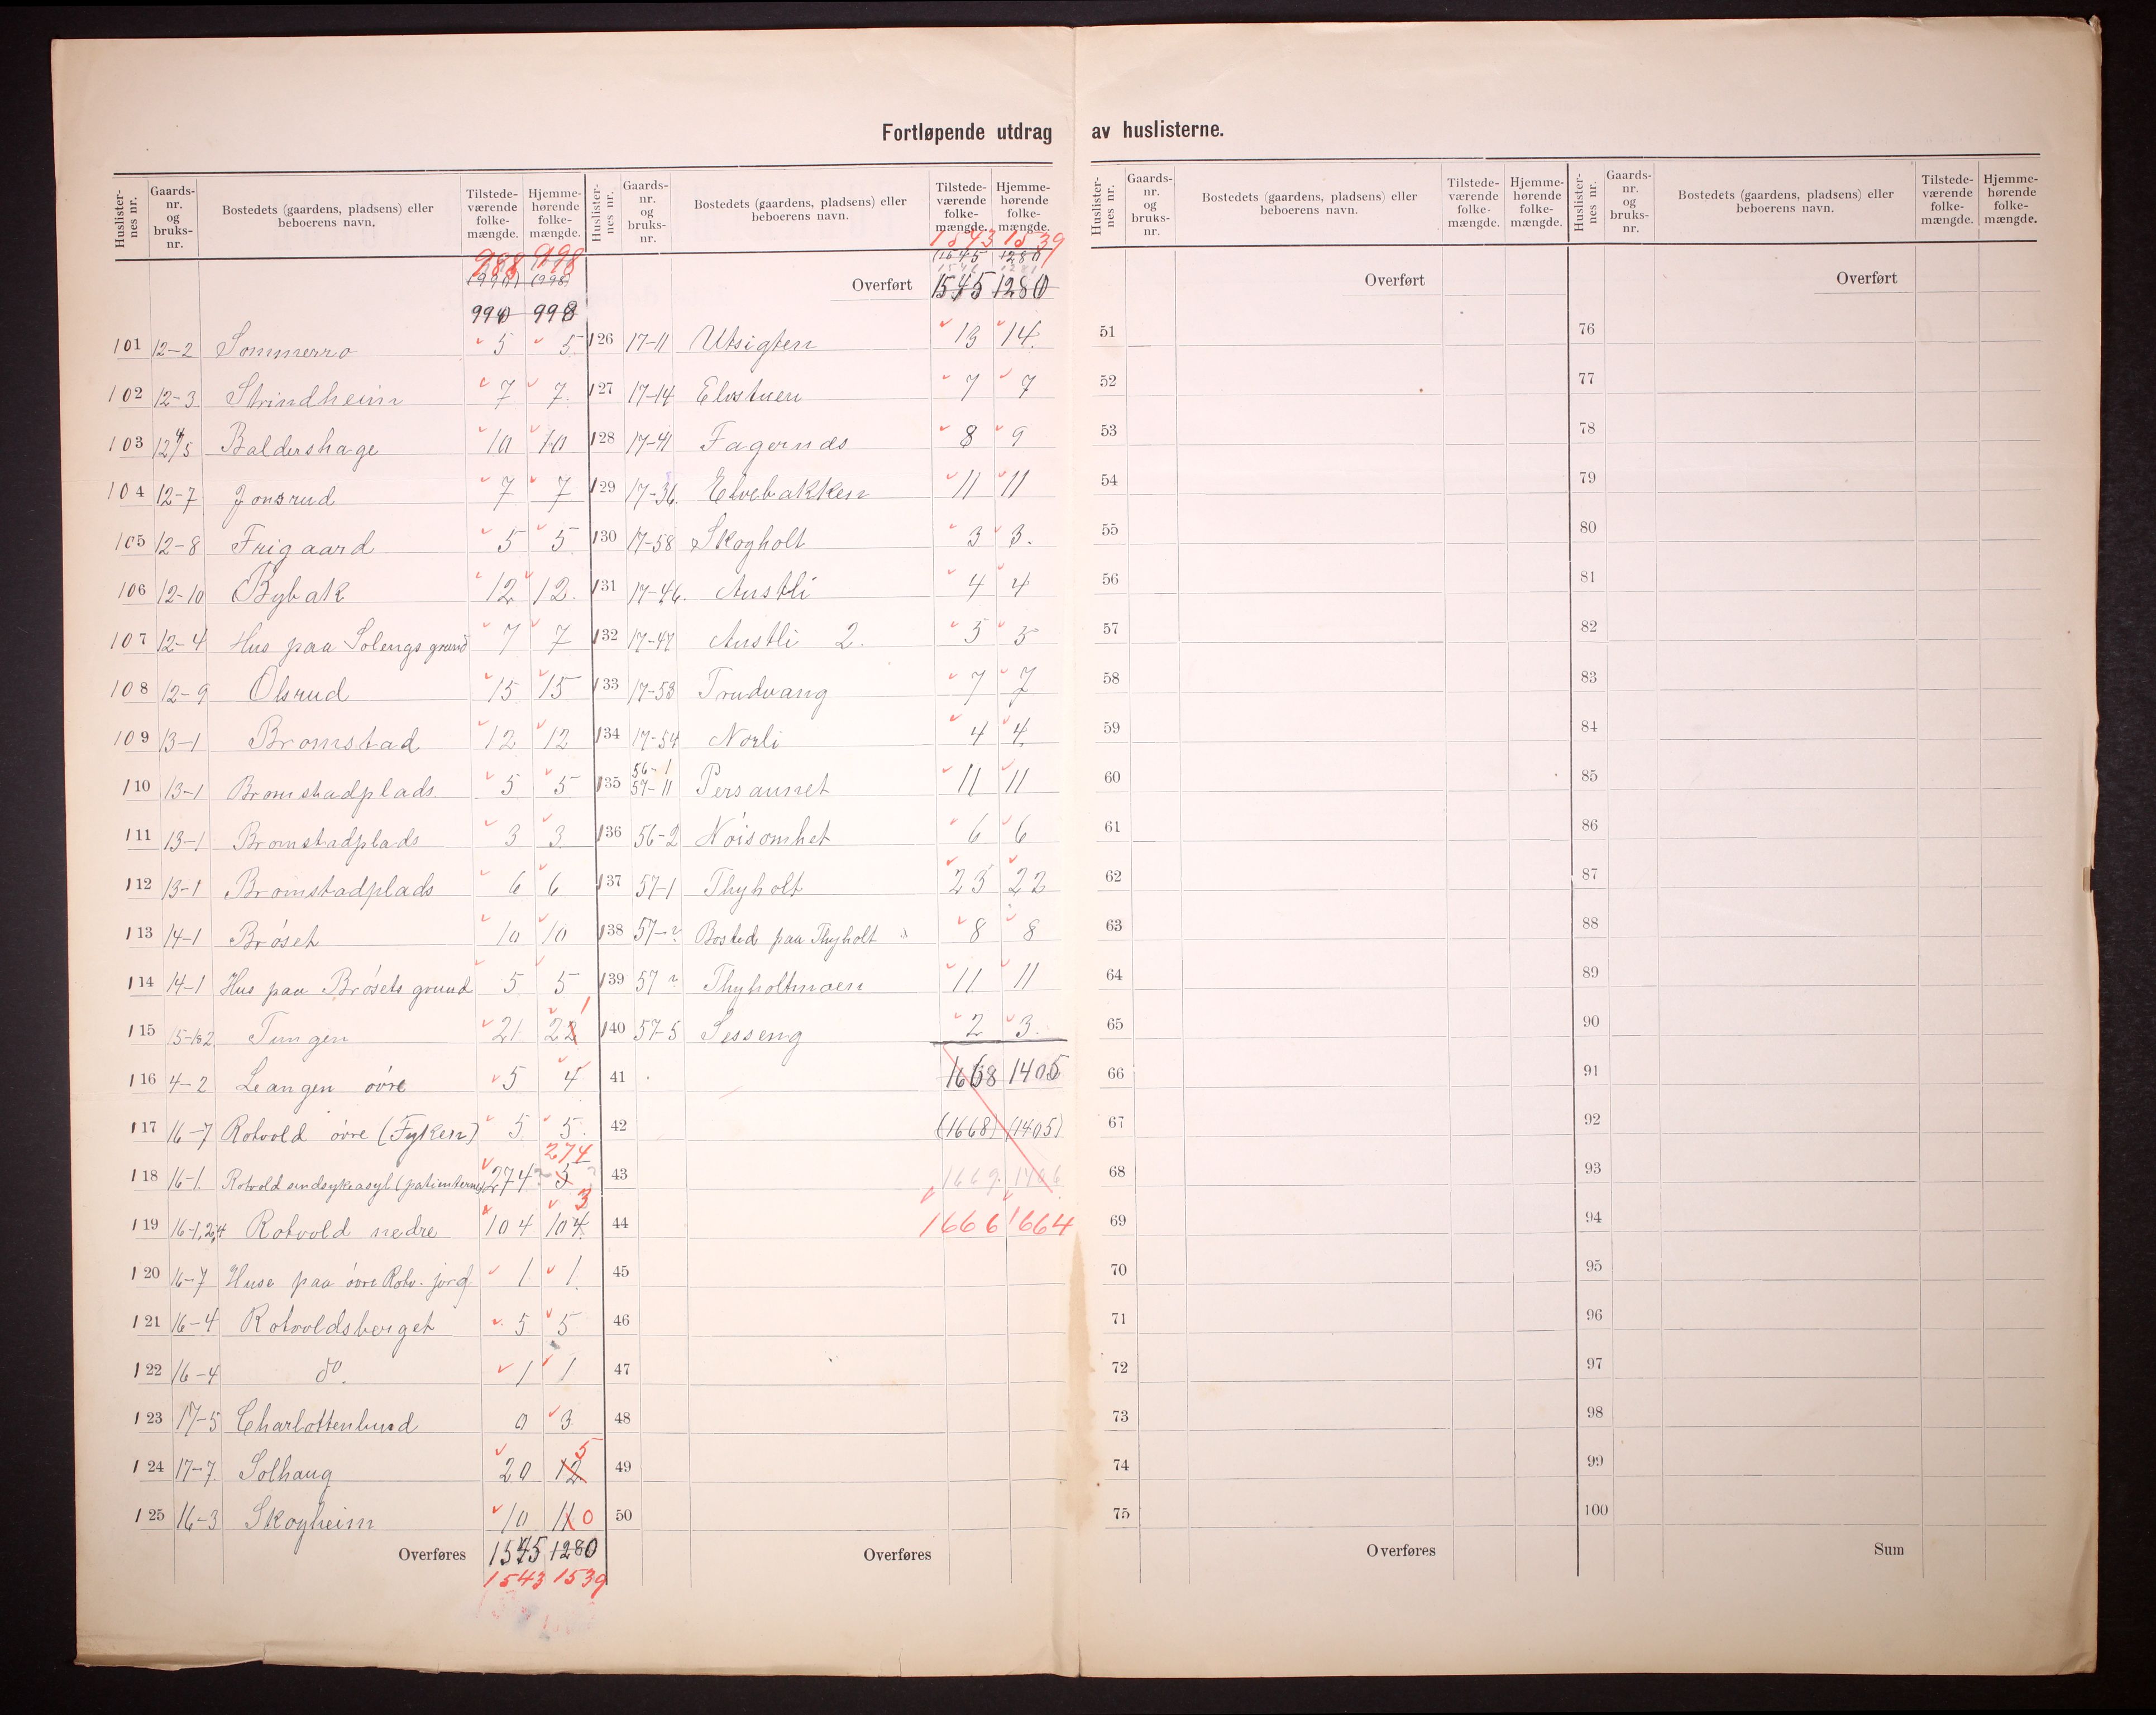 Fortløpende utdrag av huslisterne.
Huslister-nes nr. Gaards-nr. og bruks-nr. Bostedets (gaardens, pladsens) eller beboerens navn. Tilstede-værende folke-mængde. Hjemme-hørende folke-mængde.
988 998
(990) (998)
990 998
101 12-2 Sommerro 5 5.
102 12-3 Strindheim 7 7.
103 12 4/5 Baldershage 10 10
104 12-7 Jonsrud 7 7
105 12-8 Frigaard 5 5
106 12-10 Bybak 12 12.
107 12-4 Hus paa Solengs grund 7 7
108 12-9 Olsrud 15 15
109 13-1 Bromstad 12 12
110 13-1 Bromstadplads. 5 5
111 13-1 Bromstadplads 3 3
112 13-1 Bromstadplads 6 6
113 14-1 Brøset 10 10
114 14-1 Hus paa Brøsets grund 5 5
115 15-1&2 Tungen 21 22 1
116 4-2 Leangen øvre 5 4
117 16-7 Rotvold øvre (Fyken) 5 5.
118 16-1. Rotvold sindsykeasyl (patienterne) 274 5 274
119 16-1,2,4 Rotvold nedre 104 104 3
120 16-7 Huse paa øvre Rotv. jord 1 1.
121 16-4 Rotvoldsberget 5 5
122 16-4 do. 1 1
123 17-5 Charlottenlund 0 3
124 17-7. Solhaug 20 12 5
125 16-3 Skogheim 10 11 0
Overføres 1545 1280
1543 1539
Huslister-nes nr. Gaards-nr. og bruks-nr. Bostedets (gaardens, pladsens) eller beboerens navn. Tilstede-værende folke-mængde. Hjemme-hørende folke-mængde.
1543 1539
(1545 1280)
Overført 1545 1280
126 17-11 Utsigten 13 14.
127 17-14 Elvstuen 7 7
128 17-41 Fagernæs 8 9
129 17-36. Elvebakken 11 11
130 17-58 Skogholt 3 3.
131 17-46. Austli 4 4
132 17-47 Austli 2. 5 5
133 17-53 Trudvang 7 7
134 17-54 Norli 4 4
135 56-1 57-11 Persaunet 11 11
136 56-2 Nøisomhet 6 6
137 57-1 Thyholt 23 22
138 57-? Bosted paa Thyholt 8 8
139 57 ? Thyholtmoen 11 11
140 57-5 Sesseng 2 3.
41 1668 1405
42 (1668) (1405)
43 1669. 1406
44 1666 1664
45
46
47
48
49
50
Overføres
Huslister-nes nr. Gaards-nr. og bruks-nr. Bostedets (gaardens, pladsens) eller beboerens navn. Tilstede-værende folke-mængde. Hjemme-hørende folke-mængde.
Overført
51
52
53
54
55
56
57
58
59
60
61
62
63
64
65
66
67
68
69
70
71
72
73
74
75
Overføres
Huslister-nes nr. Gaards-nr. og bruks-nr. Bostedets (gaardens, pladsens) eller beboerens navn. Tilstede-værende folke-mængde. Hjemme-hørende folke-mængde.
Overført
76
77
78
79
80
81
82
83
84
85
86
87
88
89
90
91
92
93
94
95
96
97
98
99
100
Sum